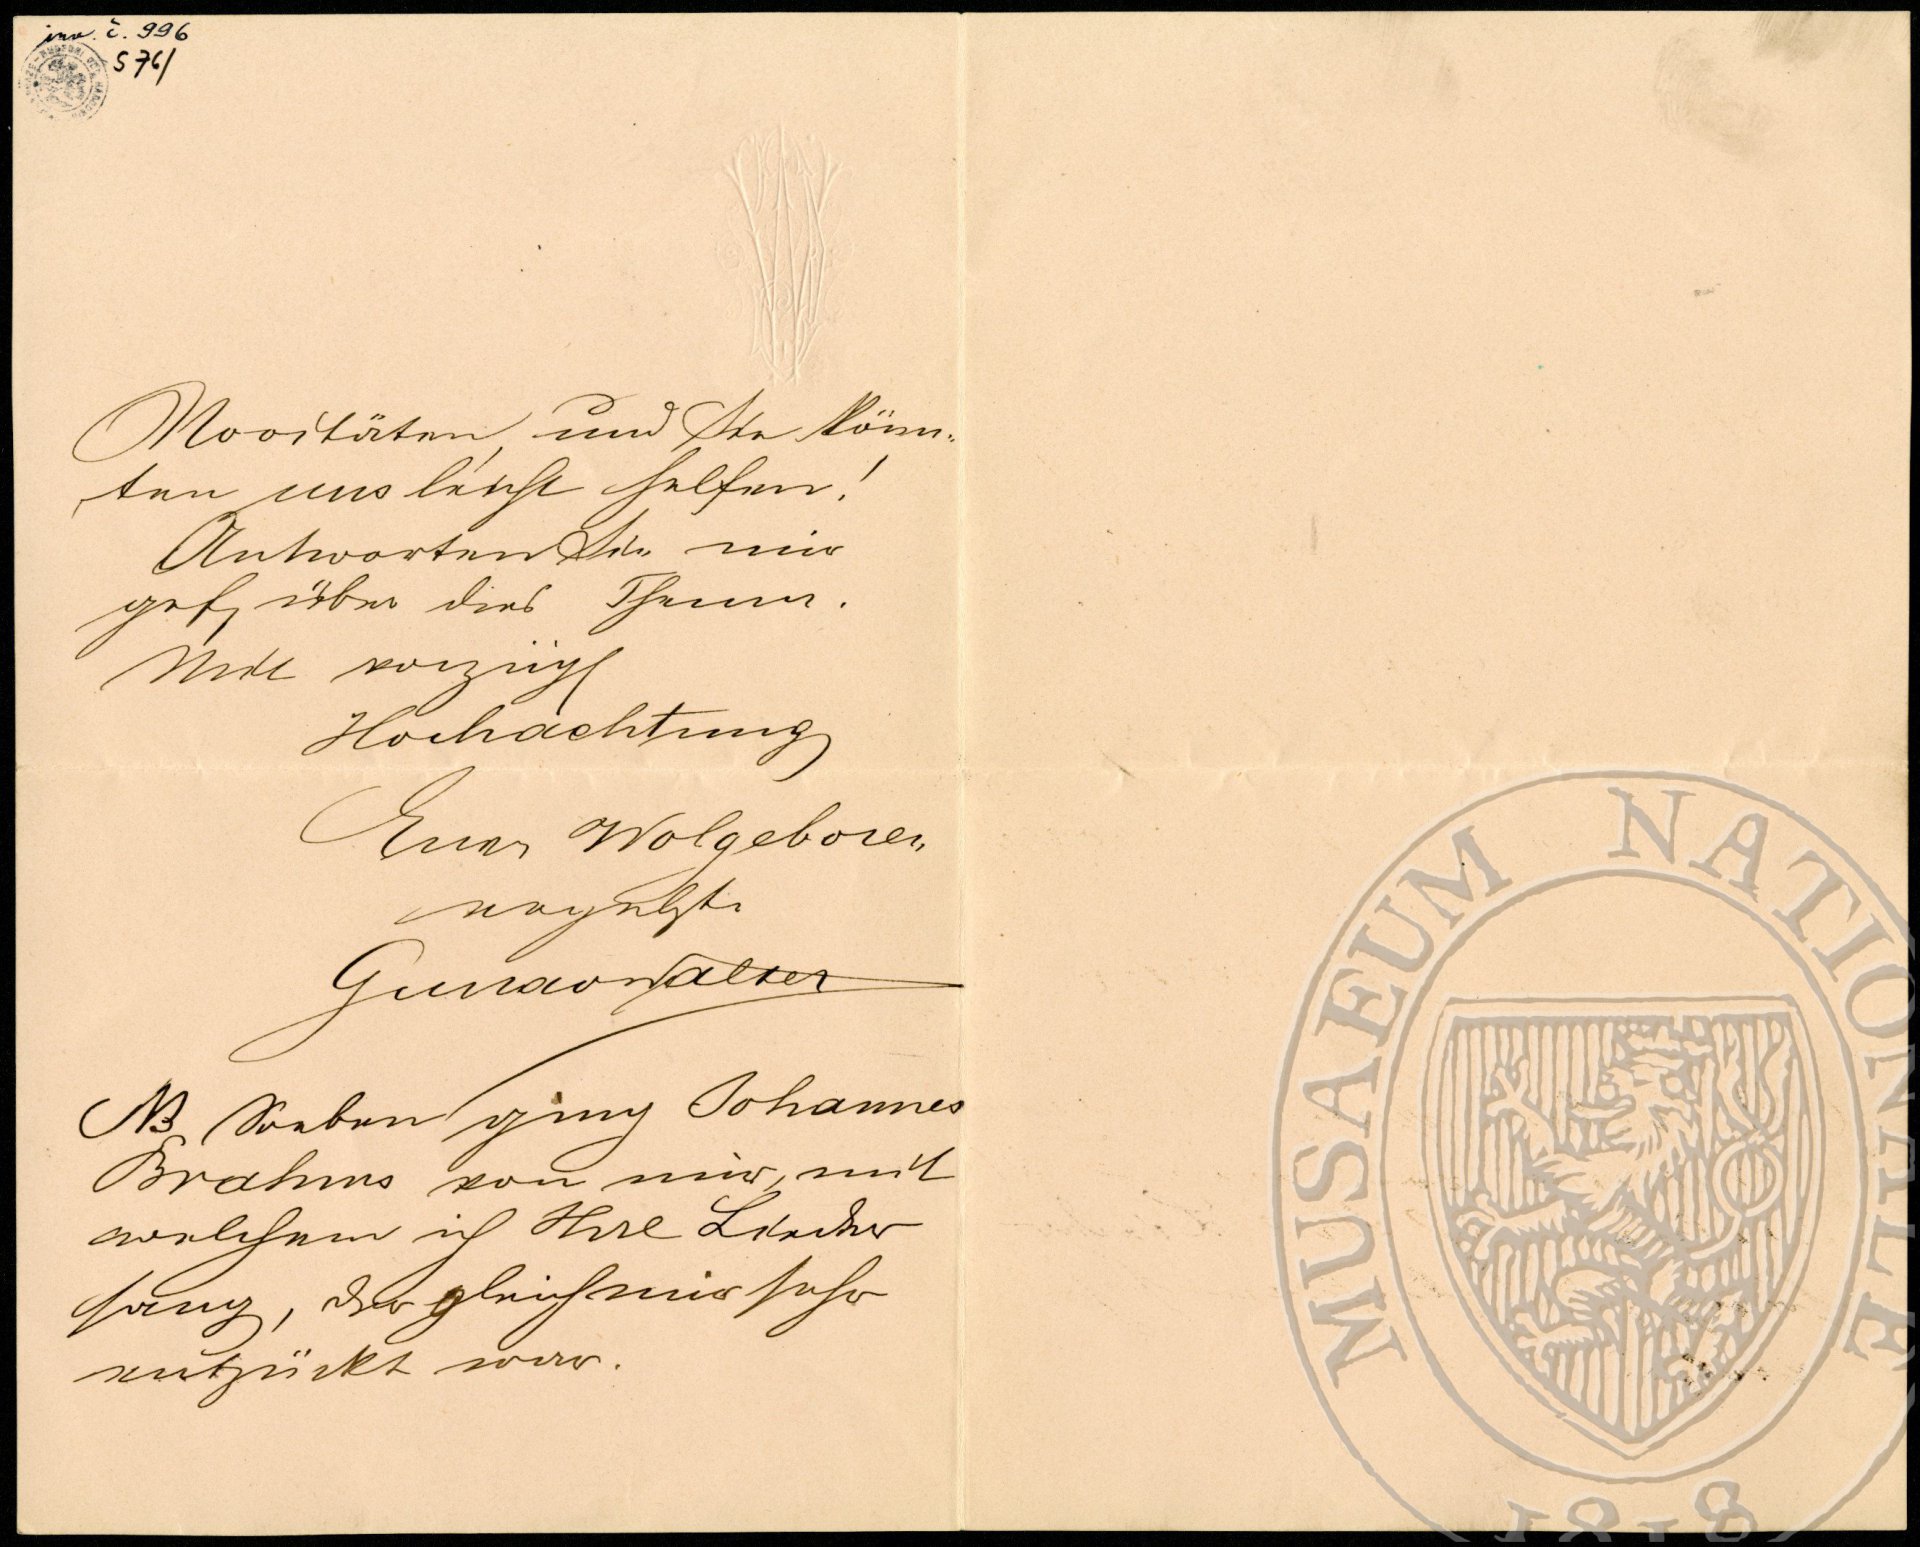 inv. č. 996
S 76/
Novitäten, und Sie könn-
ten uns leicht helfen!
Antworten Sie mir
gef. über dies Thema.
Mit vorzügl
Hochachtung
Euer Wolgeboren
ergebste
Gustav Walter
NB Soeben ging Johannes
Brahms von mir, mit
welchem ich Ihre Lieder
sang, der gleich mir sehr
entzückt war.
MUSAEUM NATIONALE
1818